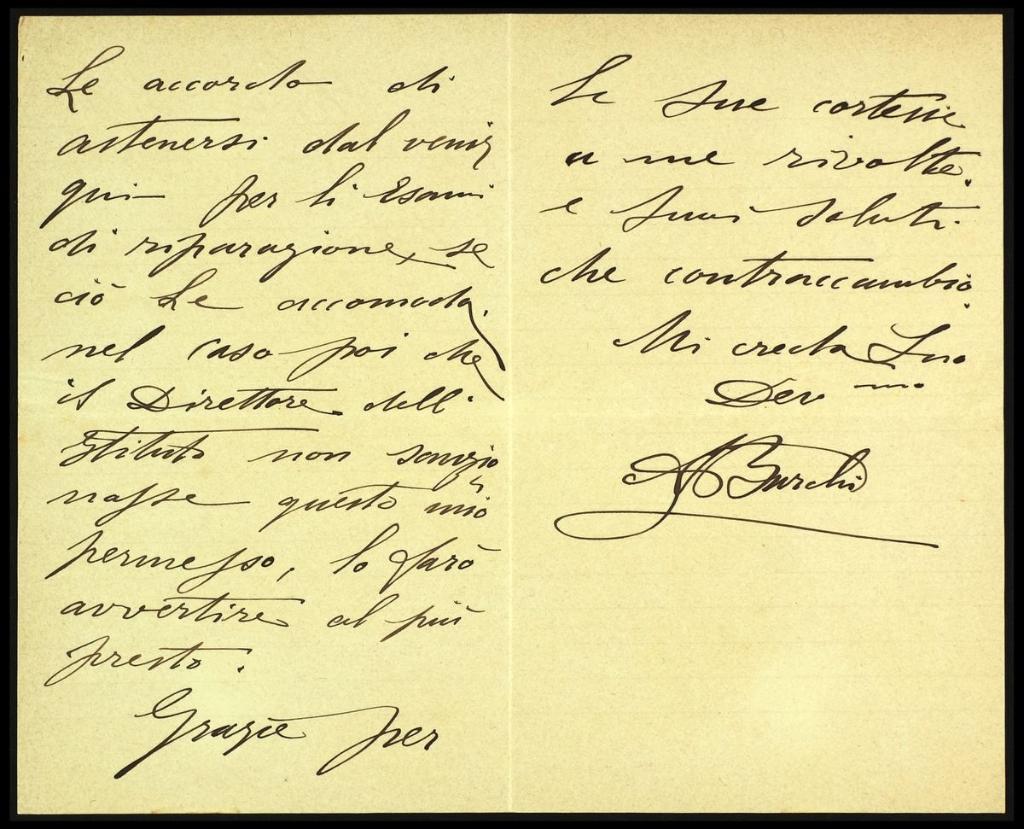 Le accordo di
astenersi dal venir
qui per li Esami
di riparazione, se
ciò Le accomoda,
nel caso poi che
il Direttore dell'
Istituto non sanzio
nasse questo mio
permesso, lo farò
avvertire al più
presto.
Grazie per
le sue cortesie
a me rivolte.
e suoi saluti
che contraccambio.
Mi creda Suo
Dev mo
A Burchi